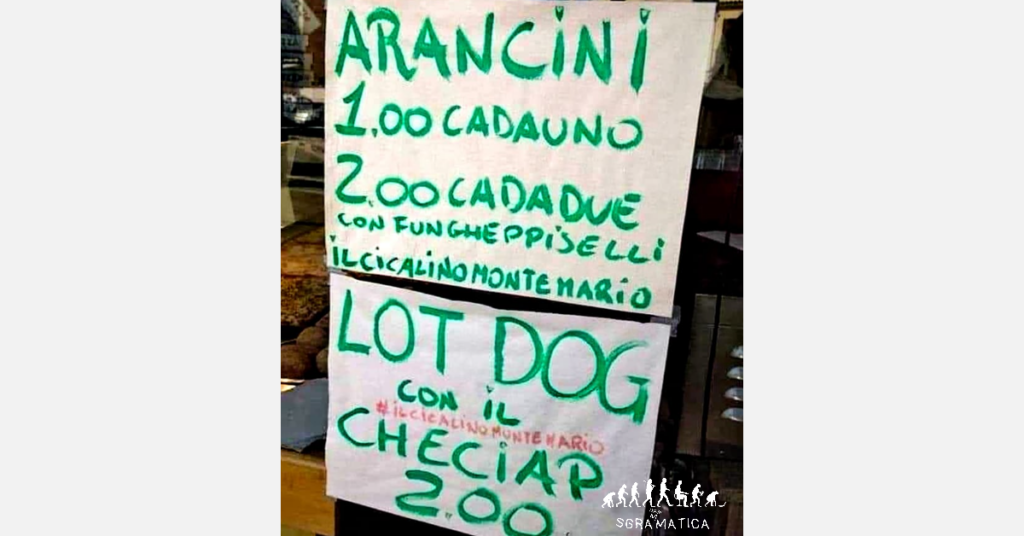 ARANCINI
1.00 CADAUNO
2.00 CADADUE
CON FUNGHEPPISELLI
ILCICALINOMONTEMARIO
LOT DOG
CON IL
#ILCICALINOMONTEMARIO
CHECIAP
2.00
SGRAMATICA